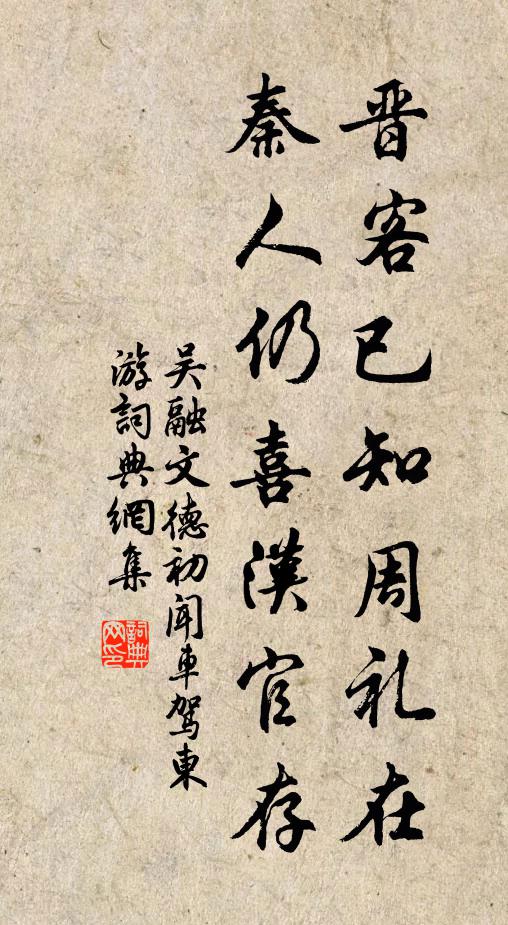 晋客已知周礼在
秦人仍喜漢官存
吴融文德初闻車駕東
游詞典網集
詞典
网印